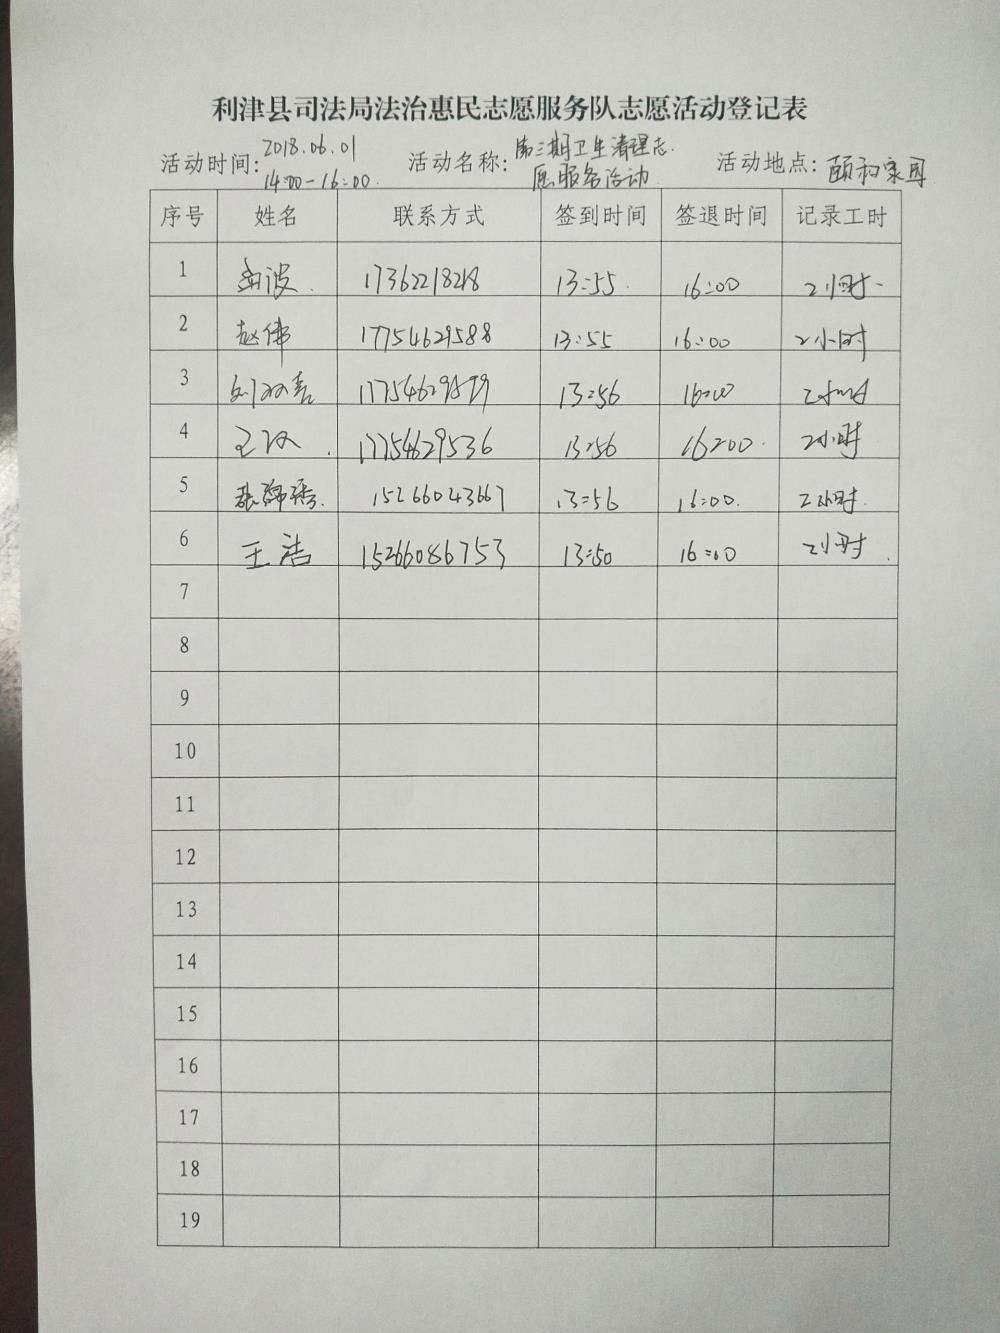 利津县司法局法治惠民志愿服务队志愿活动登记表
活动时间: 2018.06.01 14:00-16:00. 活动名称: 第三期卫生清理志愿服务活动 活动地点: 颐和家园
序号 姓名 联系方式 签到时间 签退时间 记录工时
1 波 13:55 16:00 2小时
2 赵伟 17754629588 13:55 16:00 2小时
3 13:56 16:00
4 17754629536 13:56 16:00 2小时
5 15266043667 13:56 16:00 2小时
6 王浩 15266086753 13:50 16:00 2小时
7
8
9
10
11
12
13
14
15
16
17
18
19